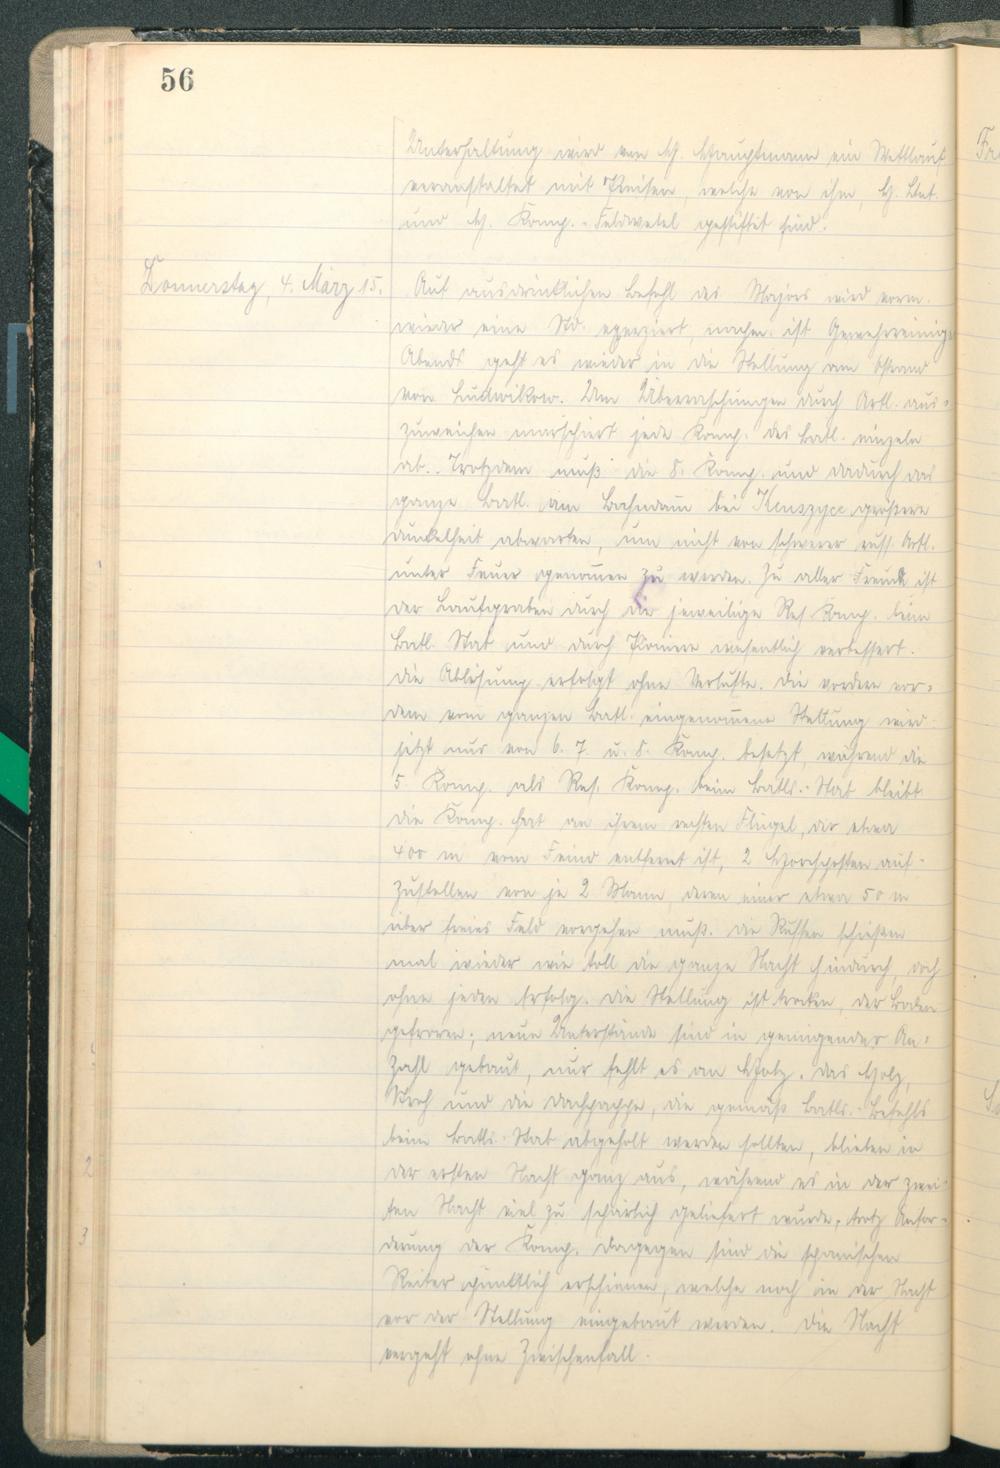 56
Unterhaltung wird von H. Hauptmann ein Wettlauf
veranstaltet mit Preisen, welche von ihm, H. Ltnt.
und H. Komp.-Feldwebel gestiftet sind.
Donnerstag, 4. März 15.
Auf ausdrücklichen Befehl des Majors wird vorm.
wieder eine Std. exerziert, nachm. ist Gewehrreinig.
Abends geht es wieder in die Stellung am Ostrand
von Ludwikow. Um Überraschungen durch Artl. aus-
zuweichen marschiert jede Komp. des Batl. einzeln
ab. Trotzdem muß die 8. Komp. und dadurch das
ganze Batl. am Bahndam̅ bei größere
Dunkelheit abwarten, um nicht von schwerer russ. Artl.
unter Feuer genom̅en zu werden. Zu aller Freude ist
der Laufgraben durch die jeweilige Res. Komp. beim
Batl. Stab und durch Pioniere wesentlich verbessert.
Die Ablösung erfolgt ohne Verluste. Die vordere vor-
dem vom ganzen Batl. eingenom̅ene Stellung wird
jetzt nur von 6. 7. u. 8. Komp. besetzt, während die
5. Komp. als Res. Komp. beim Batls.-Stab bleibt.
Die Komp. hat an ihrem rechten Flügel, der etwa
400 m vom Feind entfernt ist, 2 Horchposten auf-
zustellen von je 2 Mann, deren einer etwa 50 m
über freies Feld vorgehen muß. Die Russen schießen
mal wieder wie toll die ganze Nacht hindurch, doch
ohne jeden Erfolg. Die Stellung ist trocken, der Boden
gefroren; neue Unterstände sind in genügender An-
zahl gebaut, nur fehlt es an Holz. Das Holz,
Stroh und die Dachpappe, die gemäß Batls.-Befehls
beim Batls.-Stab abgeholt werden sollten, blieben in
der ersten Nacht ganz aus, während es in der zwei-
ten Nacht viel zu spärlich geliefert wurde, trotz Anfor-
derung der Komp. Dagegen sind die spanischen
Reiter pünktlich erschienen, welche noch in der Nacht
vor der Stellung eingebaut werden. Die Nacht
vergeht ohne Zwischenfall.